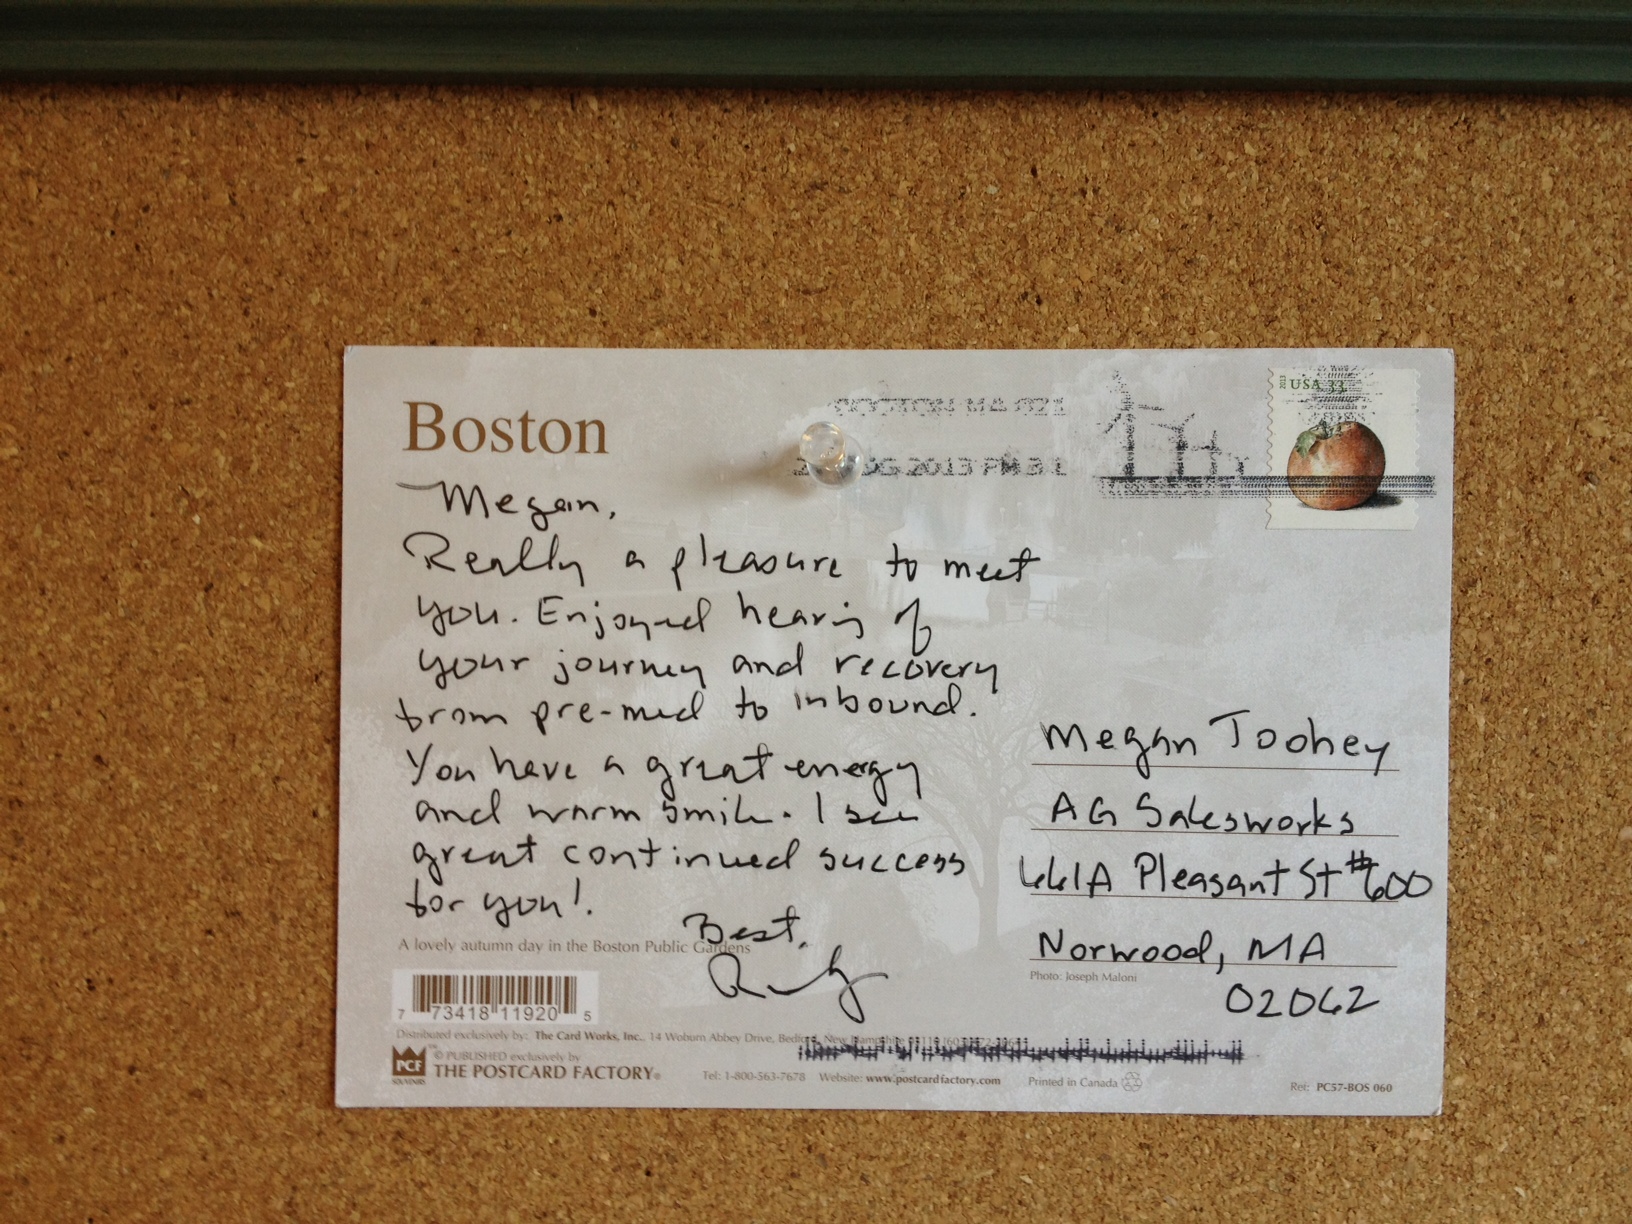 Boston
BOSTON MA 021
DG 2013 PM 3 L
2013
USA 33
Megan,
Really a pleasure to meet
you. Enjoyed hearing of
your journey and recovery
from pre-med to inbound.
You have a great energy
and warm smile. I see
great continued success
for you!
Best,
Megan Toohey
AG Salesworks
661A Pleasant St #600
Norwood, MA
02062
A lovely autumn day in the Boston Public Gardens
Photo: Joseph Maloni
7 73418 11920 5
Distributed exclusively by: The Card Works, Inc., 14 Woburn Abbey Drive, Bedford, New Hampshire
PCF
SOUVENIRS
© PUBLISHED exclusively by
THE POSTCARD FACTORY®
Tel: 1-800-563-7678 Website: www.postcardfactory.com Printed in Canada
Ref: PC57-BOS 060